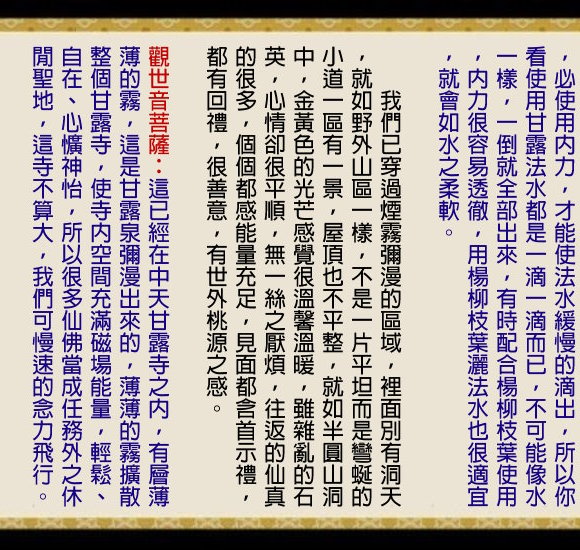 ，必使用內力，才能使法水緩慢的滴出，所以你
看使用甘露法水都是一滴一滴而已，不可能像水
一樣，一倒就全部出來，有時配合楊柳枝葉使用
，內力很容易透徹，用楊柳枝葉灑法水也很適宜
，就會如水之柔軟。
我們已穿過煙霧彌漫的區域，裡面別有洞天
，就如野外山區一樣，不是一片平坦而是彎蜒的
小道一區有一景，屋頂也不平整，就如半圓山洞
中，金黃色的光芒感覺很溫馨溫暖，雖雜亂的石
英，心情卻很平順，無一絲之厭煩，往返的仙真
的很多，個個都感能量充足，見面都含首示禮，
都有回禮，很善意，有世外桃源之感。
觀世音菩薩：這已經在中天甘露寺之內，有層薄
薄的霧，這是甘露泉彌漫出來的，薄薄的霧擴散
整個甘露寺，使寺內空間充滿磁場能量，輕鬆、
自在、心懭神怡，所以很多仙佛當成任務外之休
閒聖地，這寺不算大，我們可慢速的念力飛行。